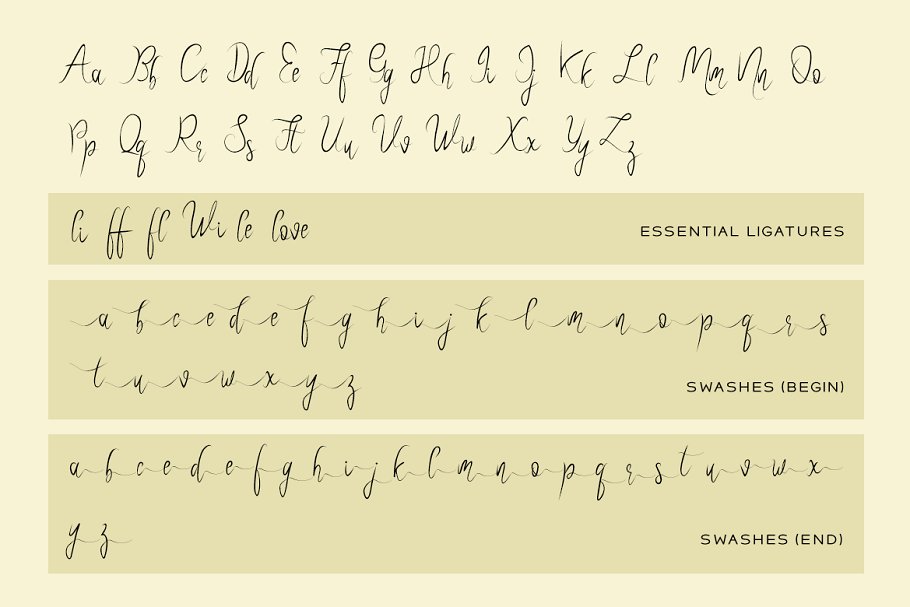 Aa Bb Cc Dd Ee Ff Gg Hh Ii Jj Kk Ll Mm Nn Oo
Pp Qq Rr Ss Tt Uu Vv Ww Xx Yy Zz
li ff fl Wi le love
ESSENTIAL LIGATURES
a b c e d e f g h i j k l m n o p q r s
t u v w x y z
SWASHES (BEGIN)
a b c e d e f g h i j k l m n o p q r s t u v w x
y z
SWASHES (END)